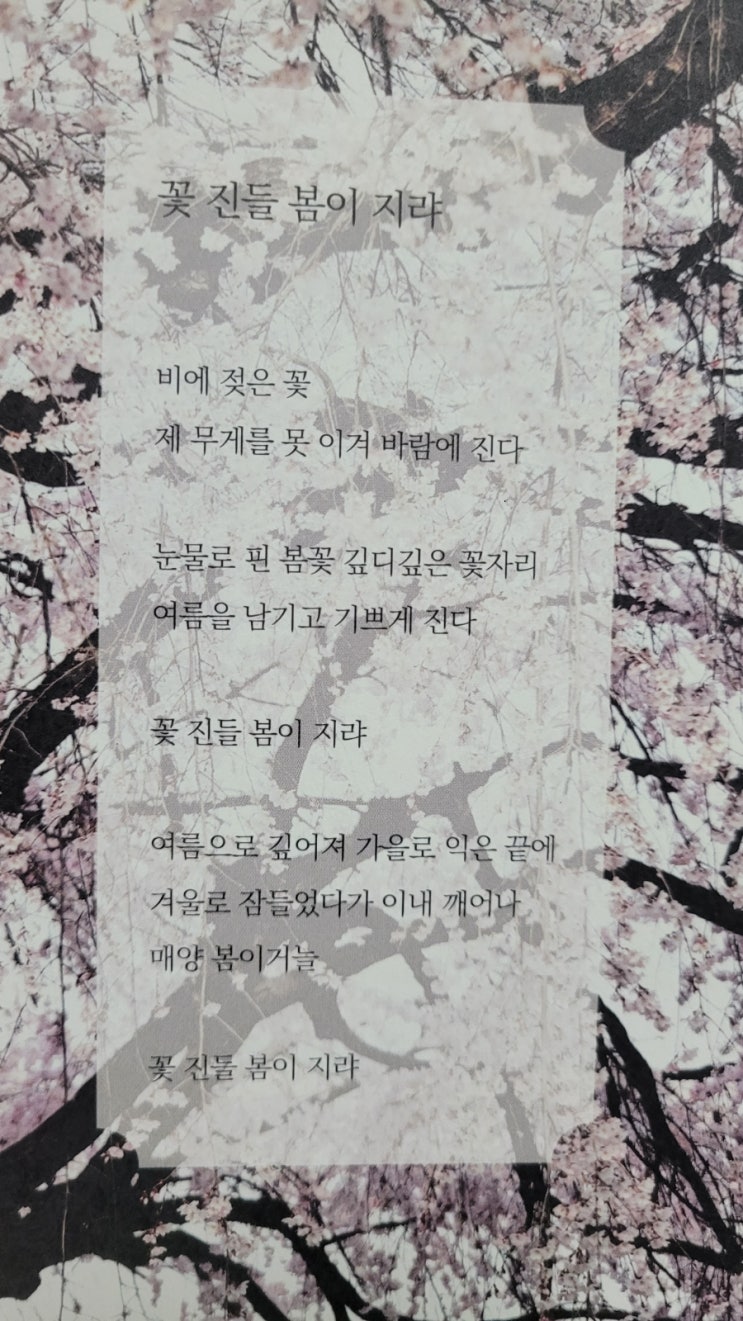 꽃 진들 봄이 지랴
비에 젖은 꽃
제 무게를 못 이겨 바람에 진다
눈물로 핀 봄꽃 깊디깊은 꽃자리
여름을 남기고 기쁘게 진다
꽃 진들 봄이 지랴
여름으로 깊어져 가을로 익은 끝에
겨울로 잠들었다가 이내 깨어나
매양 봄이거늘
꽃 진들 봄이 지랴